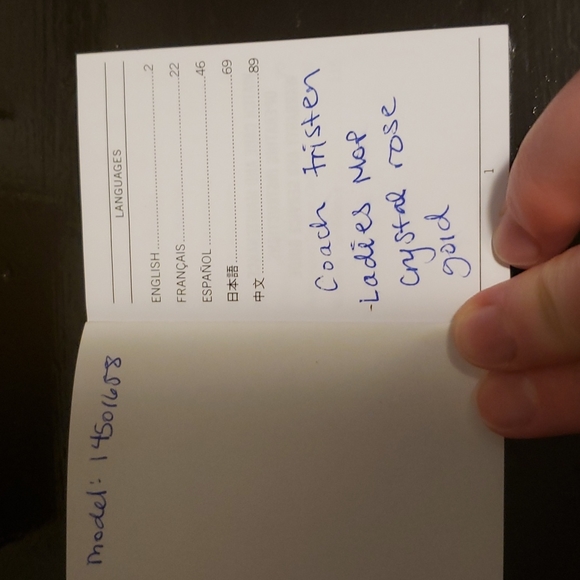 model: 14501658
LANGUAGES
ENGLISH 2
FRANÇAIS 22
ESPAÑOL 46
日本語 69
中文 89
Coach Tristen
-Ladies MOP
crystal rose
gold
1